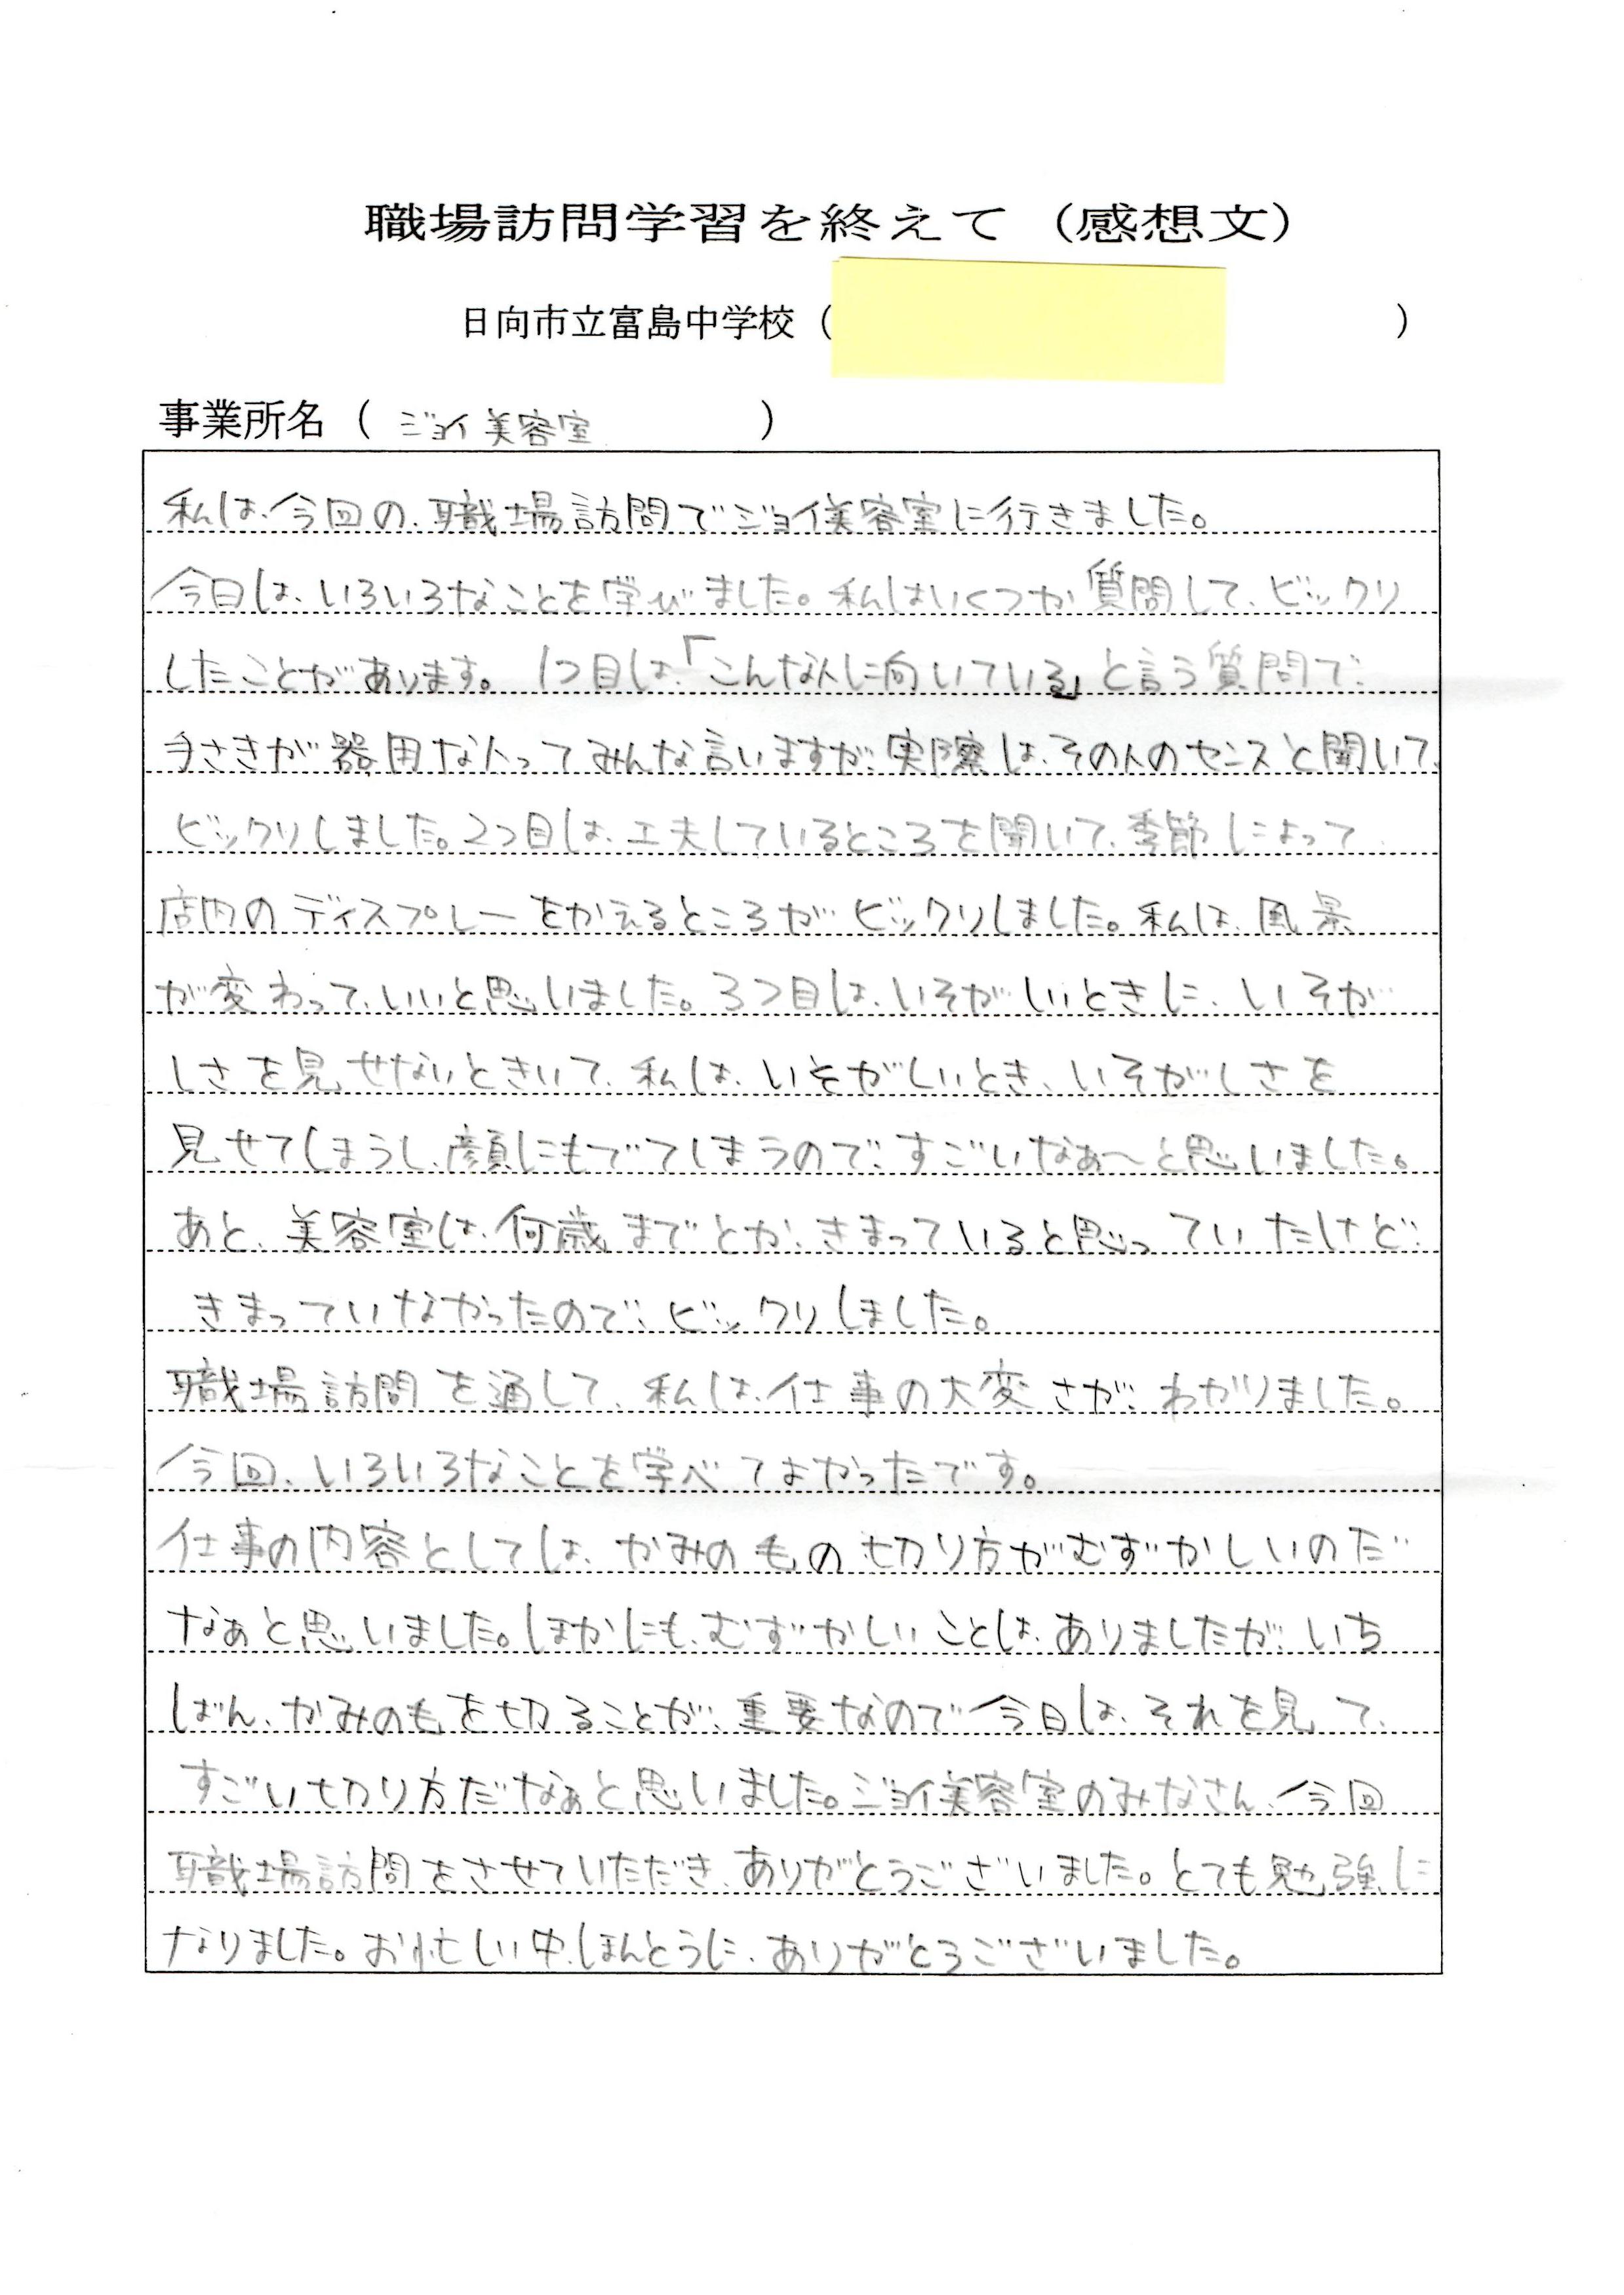 職場訪問学習を終えて（感想文）
日向市立富島中学校（　　　）
事業所名（ジョイ美容室　）
私は、今回の、職場訪問でジョイ美容室に行きました。
今日は、いろいろなことを学びました。私はいくつか質問して、ビックリ
したことがあります。1つ目は、「こんな人に向いている」と言う質問で、
手さきが器用な人ってみんな言いますが、実際は、その人のセンスと聞いて、
ビックリしました。2つ目は、工夫しているところを聞いて、季節によって
店内のディスプレーをかえるところが、ビックリしました。私は、風景
が変わって、いいと思いました。3つ目は、いそがしいときに、いそが
しさを見せないときいて、私は、いそがしいとき、いそがしさを
見せてしまうし、顔にもでてしまうので、すごいなぁ〜と思いました。
あと、美容室は、何歳までとか、きまっていると思っていたけど、
きまっていなかったので、ビックリしました。
職場訪問を通して、私は、仕事の大変さが、わかりました。
今回、いろいろなことを学べてよかったです。
仕事の内容としては、かみのもの切り方がむずかしいのだ
なぁと思いました。ほかにも、むずかしいことは、ありましたが、いち
ばん、かみのもを切ることが、重要なので今日は、それを見て、
すごい切り方だなぁと思いました。ジョイ美容室のみなさん、今回
職場訪問をさせていただき、ありがとうございました。とても勉強に
なりました。お忙しい中、ほんとうに、ありがとうございました。